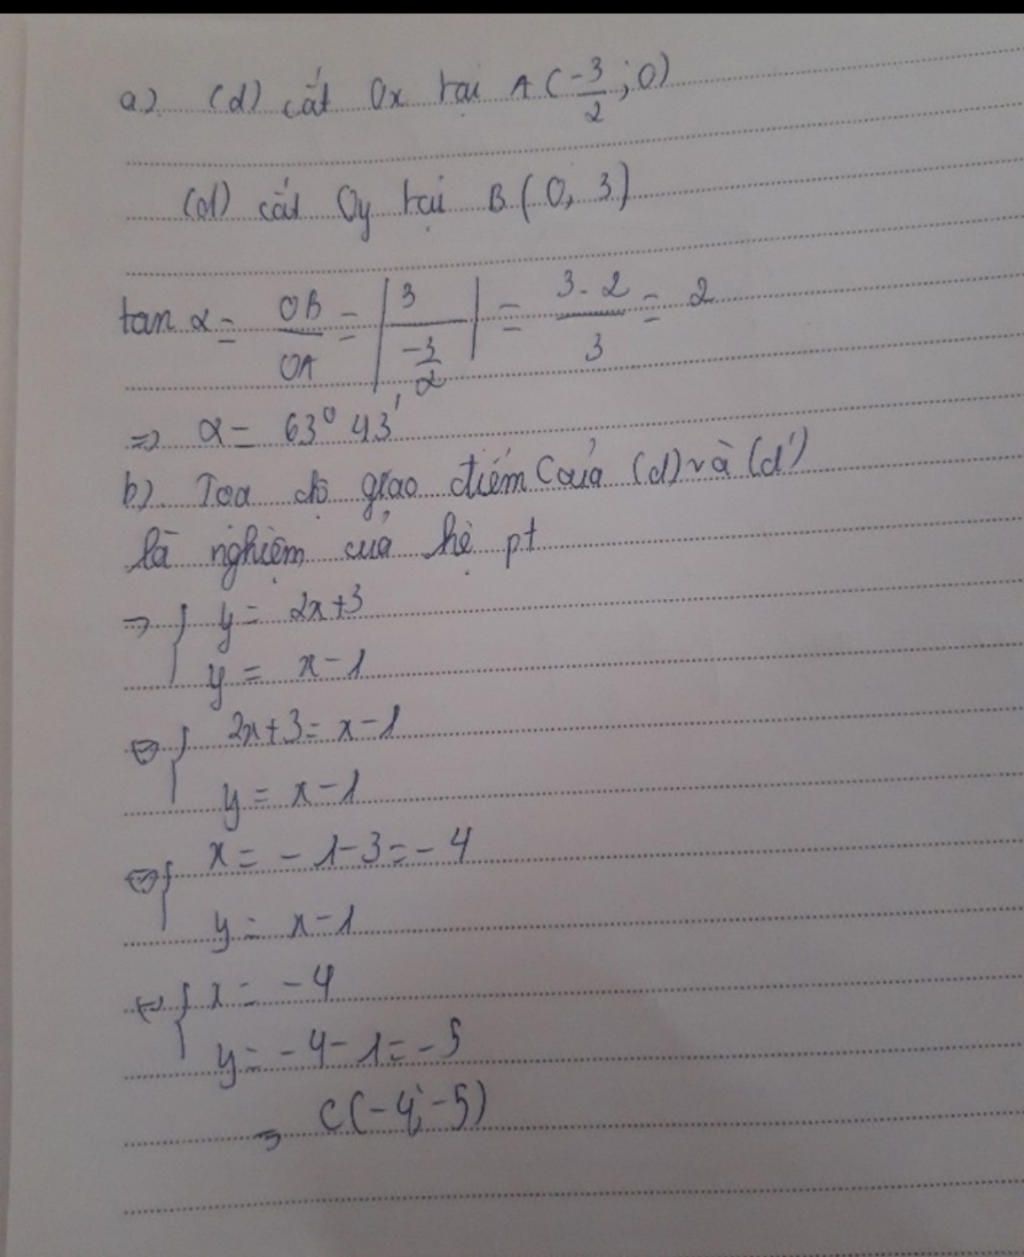 a) (d) cắt Ox tại A(-3/2; 0)
(d) cắt Oy tại B(0; 3)
tan α = OB/OA = |3/(-3/2)| = 3.2/3 = 2
=> α = 63° 43'
b) Toạ độ giao điểm C của (d) và (d')
là nghiệm của hệ pt
→ { y = 2x+3
y = x-1
⇔ { 2x+3 = x-1
y = x-1
⇔ { x = -1-3 = -4
y = x-1
⇔ { x = -4
y = -4-1 = -5
⇒ C(-4; -5)